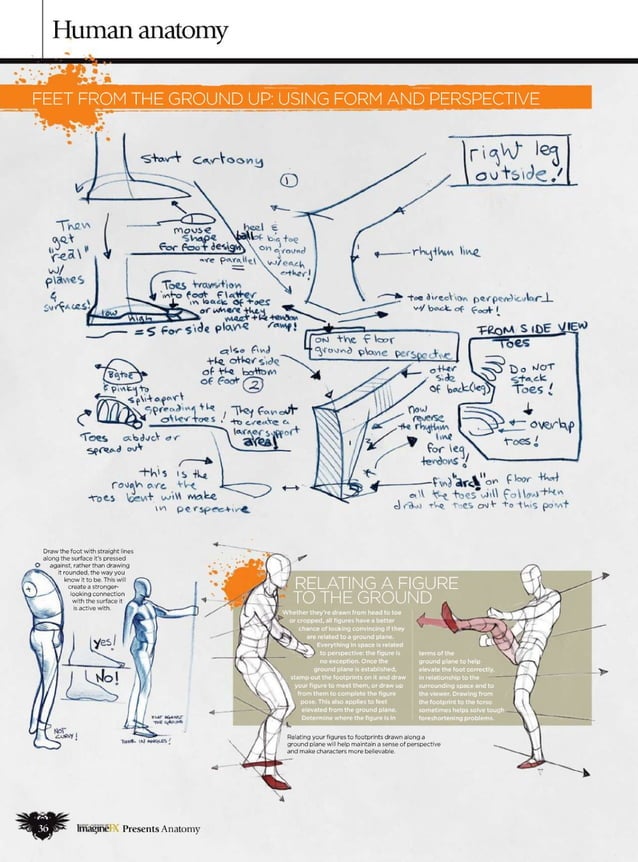 Human anatomy
FEET FROM THE GROUND UP: USING FORM AND PERSPECTIVE
start cartoony
1
right leg
outside!
Then
get
"real"
w/
planes
&
surfaces!
mouse
shape
for foot design
heel &
ball of big toe
on ground
are parallel w/each
other!
rhythm line
Toes transition
into foot flatter
in back of toes
or where they
meet the tendon
ramp!
low
high
= 5 for side plane
toe direction perpendicular ⊥
w/ back of foot!
ON the floor
ground plane perspective
FROM SIDE VIEW
Toes
Do NOT
stack
Toes!
overlap
toes!
also find
the other side
of the bottom
of foot 2
Big toe
& pinky to
split apart
spreading the
other toes!
They fan out
to create a
larger support
area!
Toes abduct or
spread out
other
side
of back (leg)
now
reverse
the rhythm
line
for leg
tendons!
this is the
rough arc the
toes bent will make
in perspective
find "arc!" on floor that
all the toes will follow then
draw the toes out to this point
Draw the foot with straight lines
along the surface it's pressed
against, rather than drawing
it rounded, the way you
know it to be. This will
create a stronger-
looking connection
with the surface it
is active with.
yes!
No!
NOT
CURVY!
FLAT AGAINST
THE GROUND
THINK IN ANGLES!
RELATING A FIGURE
TO THE GROUND
Whether they're drawn from head to toe
or cropped, all figures have a better
chance of looking convincing if they
are related to a ground plane.
Everything in space is related
to perspective: the figure is
no exception. Once the
ground plane is established,
stamp out the footprints on it and draw
your figure to meet them, or draw up
from them to complete the figure
pose. This also applies to feet
elevated from the ground plane.
Determine where the figure is in
terms of the
ground plane to help
elevate the foot correctly,
in relationship to the
surrounding space and to
the viewer. Drawing from
the footprint to the torso
sometimes helps solve tough
foreshortening problems.
Relating your figures to footprints drawn along a
ground plane will help maintain a sense of perspective
and make characters more believable.
36
ImagineFX Presents Anatomy